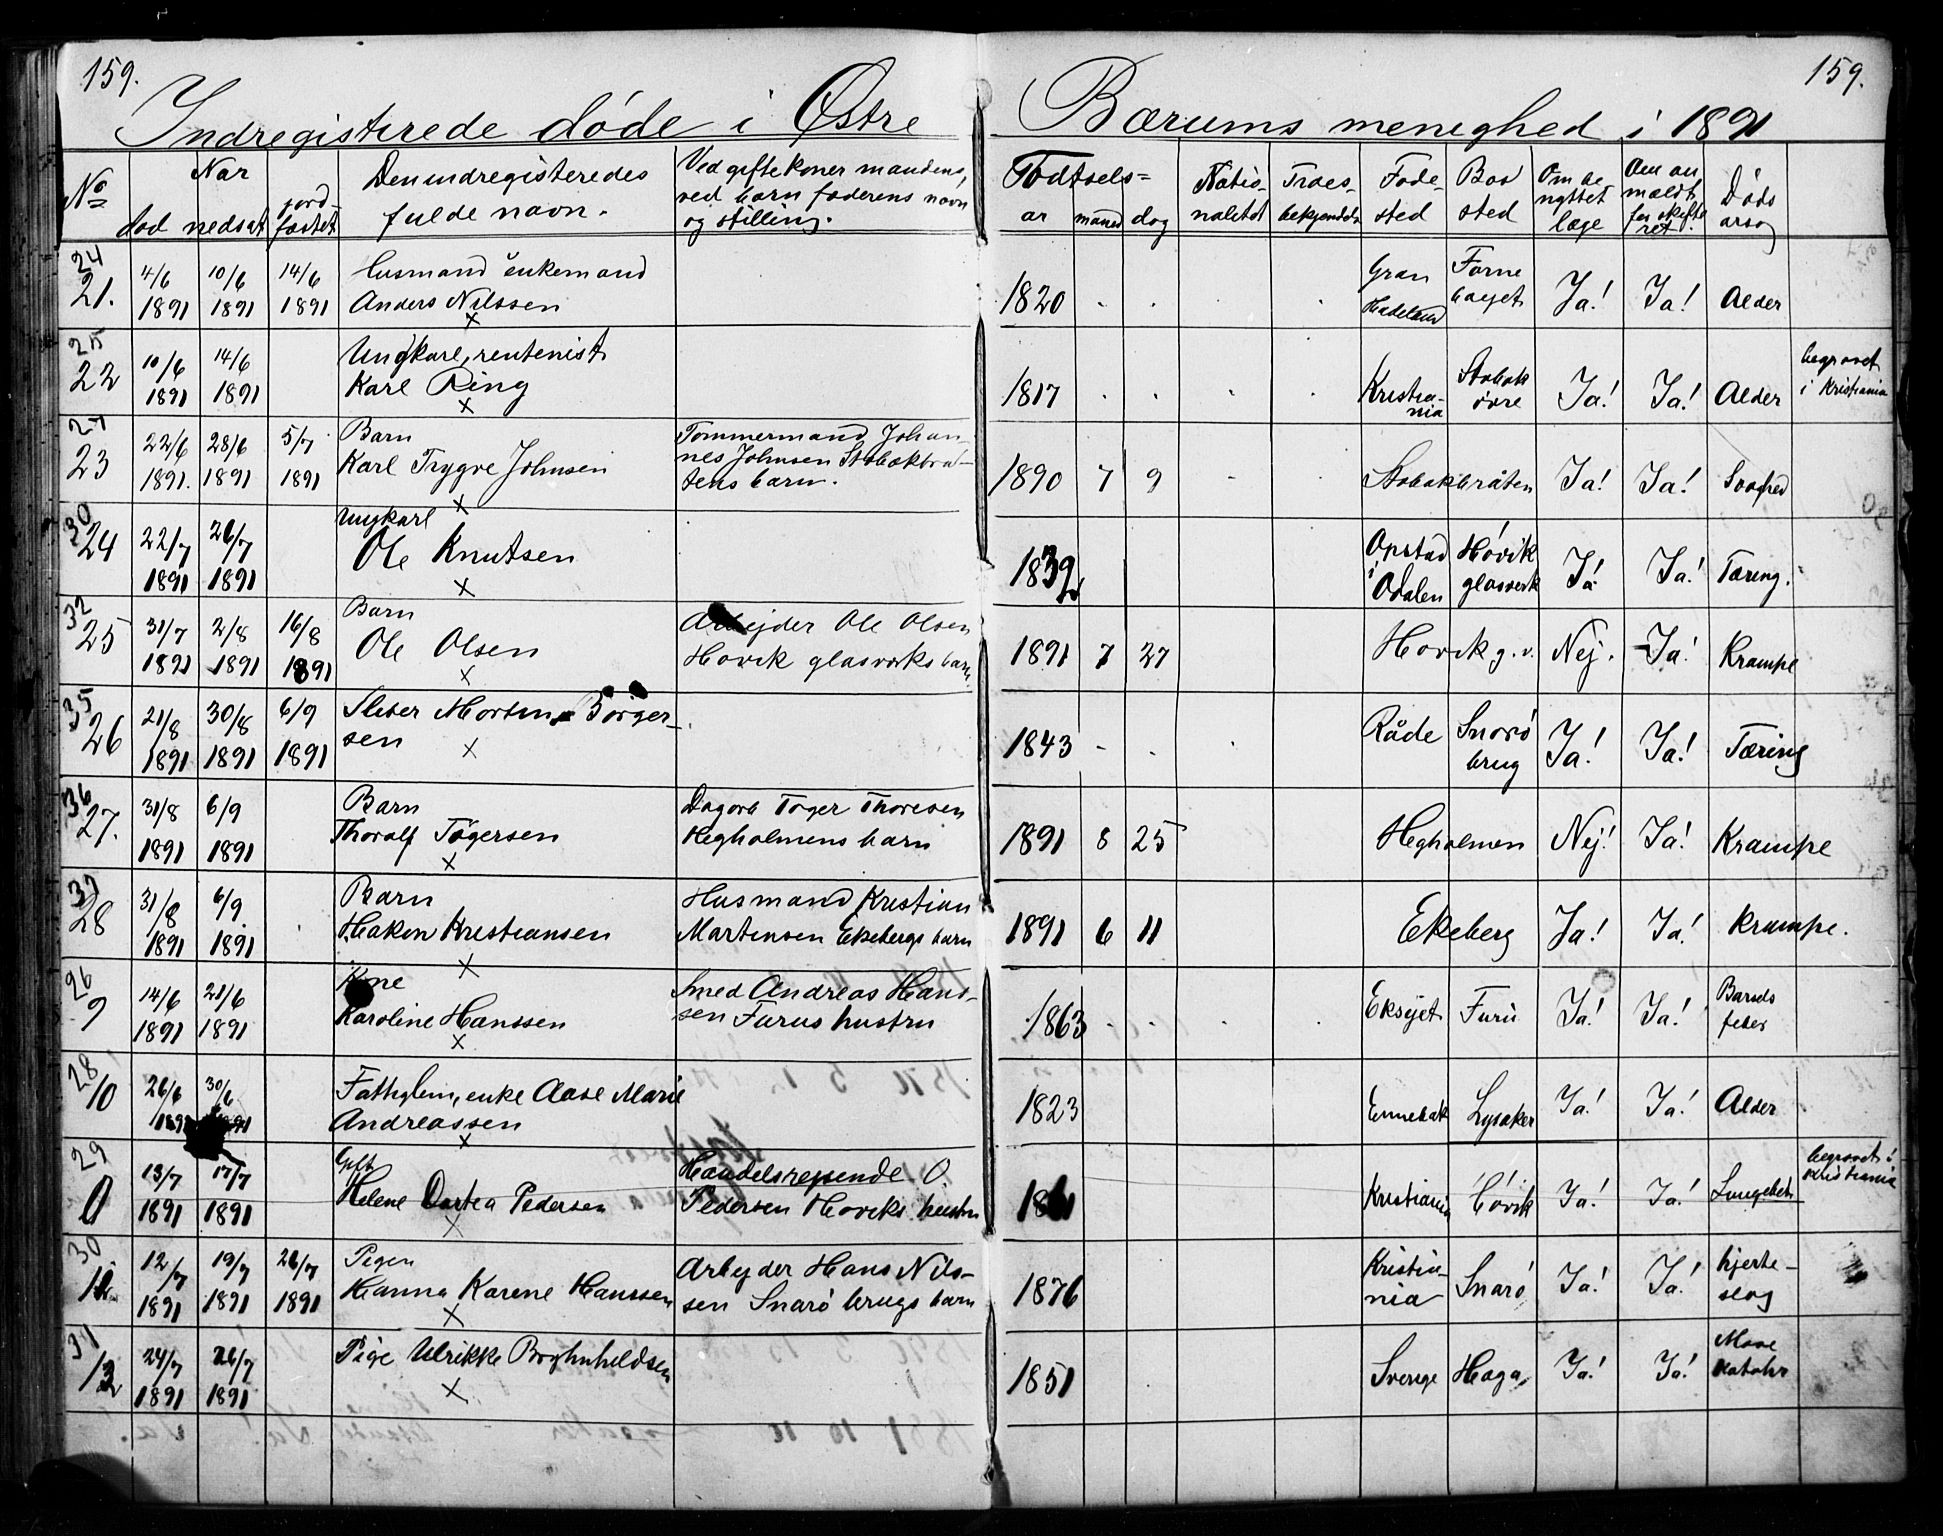 159.
159.
Indregisterede døde i Østre Bærums menighed i 1891
No
Når
død nedsat jord-
fæstet
Den indregisteredes
fulde navn.
Ved gifte koner mandens,
ved barn faderens navn
og stilling.
Fødsels=
år måned dag
Natio-
nalitet
Troes-
bekjendelse
Føde-
sted
Bo-
sted
Om be
nyttet
læge
Om an
mældt
for skifte
ret.
Døds
årsag
24
21. 4/6 1891 10/6 1891 14/6 1891
Husmand enkemand
Anders Nilssen
x
1820 Gran
Hadeland
Ja! Ja! Alder
25
22 10/6 1891 14/6 1891
Ungkarl, rentenist
Karl Ring
x
1817 Kristia-
nia
Stabæk
øvre
Ja! Ja! Alder
begravet
i Kristiania
27
23 22/6 1891. 28/6 1891 5/7 1891
Barn
Karl Trygve Johnsen
x
Tømmermand Johan-
nes Johnsen Stabækbrå-
tens barn.
1890 7 9 Stabækbråten Ja! Ja!
30
24 22/7 1891 26/7 1891
Ungkarl
Ole Knutsen
x
1839 Opstad
i Odalen
Høvik
glasverk
Ja! Ja! Tæring.
32
25 31/7 1891 2/8 1891 16/8 1891
Barn
Ole Olsen
x
Arbejder Ole Olsen
Høvik glasverks barn.
1891 7 27 Høvik g.v. Nej. Ja! Krampe
35
26 21/8 1891 30/8 1891 6/9 1891
Sliber Morten Børger-
sen
x
1843 Råde Snarø
brug
Ja! Ja! Tæring
36
27. 31/8 1891 6/9 1891
Barn
Thoralf Tøgersen
x
Dagarb Tøger Thoresen
Hegholmens barn
1891 8 25 Hegholmen Nej! Ja! Krampe
37
28 31/8 1891 6/9 1891
Barn
Håkon Kristiansen
x
Husmand Kristian
Martinsen Ekebergs barn
1891 6 11 Ekeberg Ja! Ja! Krampe.
26
9 14/6 1891 21/6 1891
Kone
Karoline Hanssen
x
Smed Andreas Hans-
sen Furus hustru
1863 Eksjet Furu Ja! Ja! Barsels
feber
28
10 26/6 1891 30/6 1891
Fattiglem, enke Aase Marie
Andreassen
x
1823 Ennebak Lysaker Ja! Ja! Alder
29
13/7 1891 17/7 1891
Gift
Helene Dortea Pedersen
x
Handelsrejsende O.
Pedersen Høviks hustru
Kristiania Høvik Ja! Ja! Lungebet.
begravet i
Kristiania
30
12/7 1891 19/7 1891 26/7 1891
Pigen
Hanna Karene Hanssen
x
Arbejder Hans Nils-
sen Snarø brugs barn
1876 Kristia-
nia
Snarø Ja! Ja! hjerte-
slag
31
24/7 1891 26/7 1891
Pige Ulrikke Bryhnheldsen
x
1851 Sverige Haga Ja! Ja! Mave
katahr